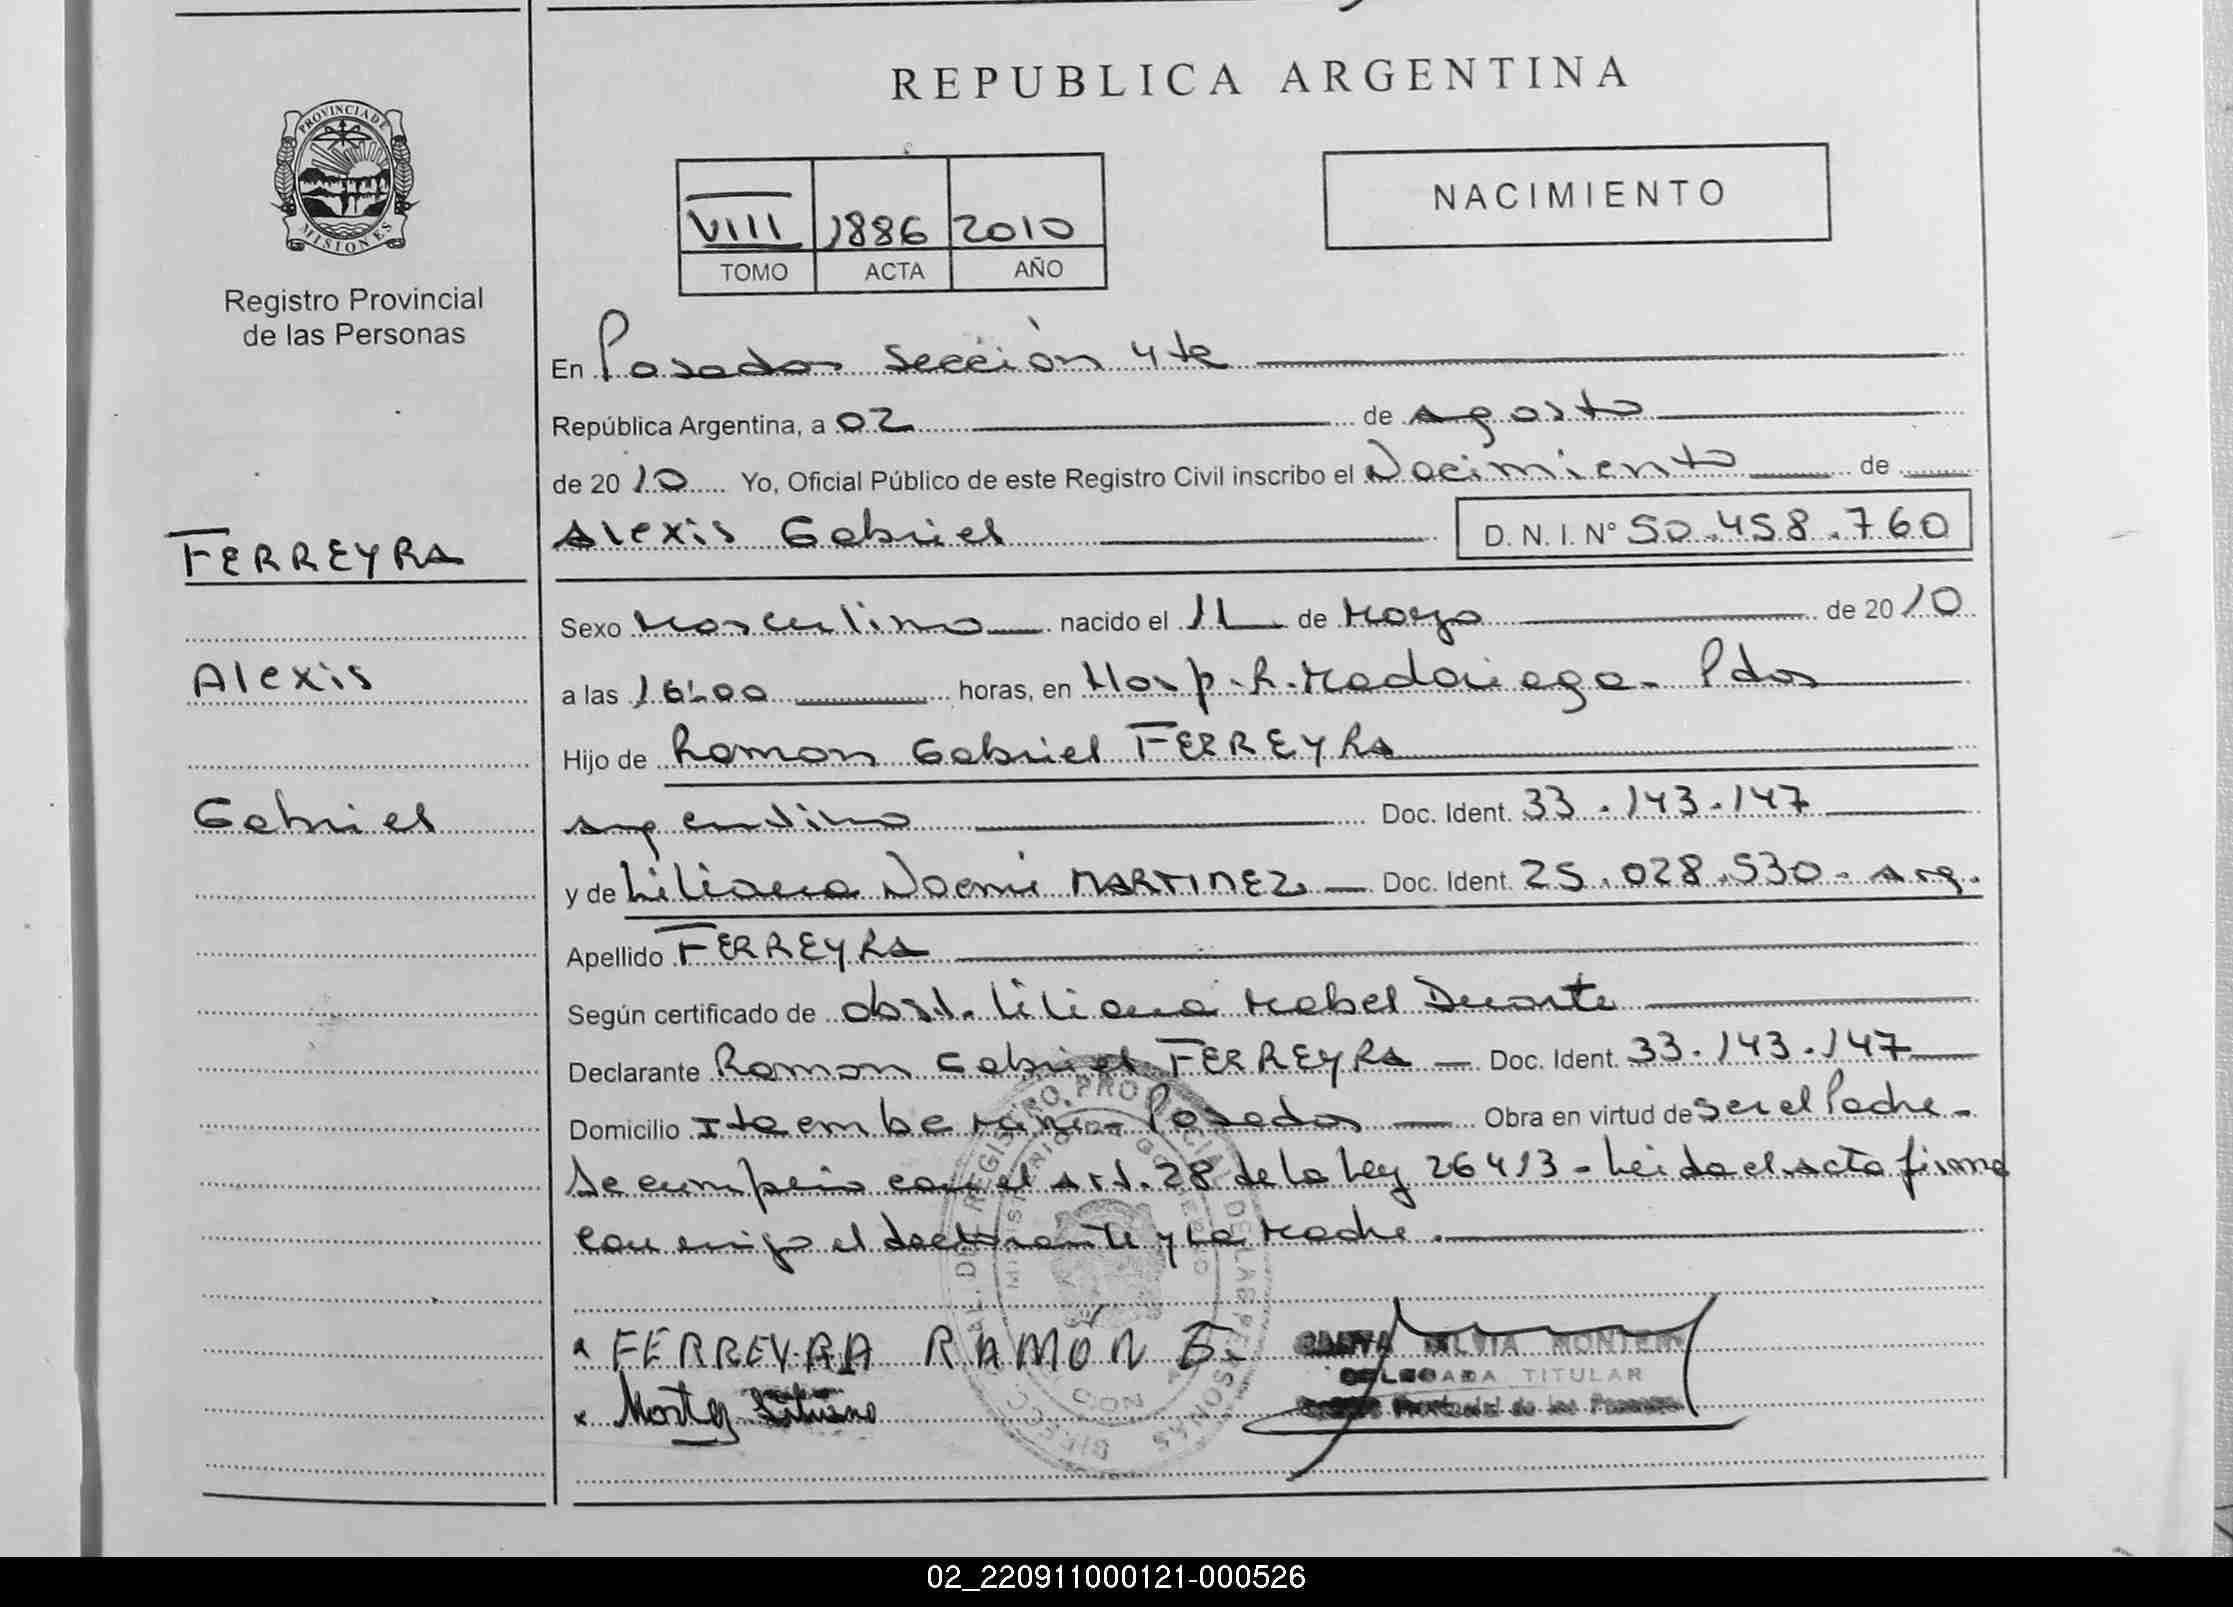 REPUBLICA ARGENTINA
PROVINCIA DE MISIONES
Registro Provincial
de las Personas
NACIMIENTO
VIII 1886 2010
TOMO ACTA AÑO
En Posadas Sección 4ta
República Argentina, a 02 de agosto
de 2010 Yo, Oficial Público de este Registro Civil inscribo el Nacimiento de
FERREYRA
Alexis Gabriel D. N. I. N° 50.458.760
Sexo Masculino nacido el 11 de Mayo de 2010
Alexis
a las 16:00 horas, en Hosp. R. Madariaga - Pdas
Hijo de Ramon Gabriel FERREYRA
Gabriel
argentino Doc. Ident. 33.143.147
y de Liliana Noemi MARTINEZ Doc. Ident. 25.028.530 - arg.
Apellido FERREYRA
Según certificado de obst. Liliana Mabel Duarte
Declarante Ramon Gabriel FERREYRA Doc. Ident. 33.143.147
Domicilio Itaembe Mini - Posadas Obra en virtud de ser el Padre -
Se cumplio con el art. 28 de la Ley 26413 - Leida el acta firma
conmigo el declarante y la Madre.
FERREYRA RAMÓN G.
SILVIA MONTERO
DELEGADA TITULAR
Provincial de las Personas
02_220911000121-000526